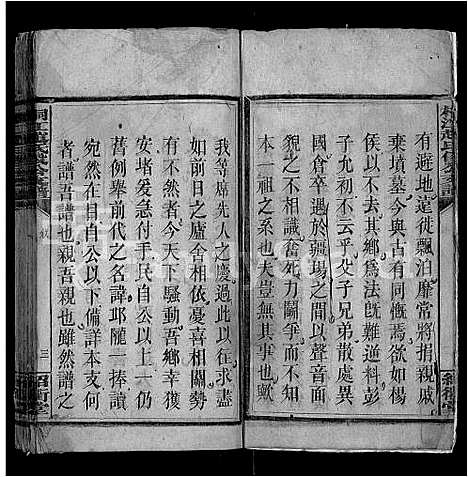 有避地遠徙飄泊靡常將捐親戚
棄墳墓今與古有同慨焉欲如楊
侯以不去其鄉為法旣難逆料彭
子允初不云乎父子兄弟散處異
國倉卒遇於疆場之間聲音面
貌之不相識奮力鬭爭而不知其
本一祖之系也夫豈無其事也歟
我等席先人之慶過此以往求盡
如前日之廬舍相依憂喜相關勢
有難行者今天下騷動吾鄉幸獲
安堵爰急付手民自公以上一仍
舊例舉前代之名諱邛隨一捧讀
宛然若在自公以下備詳本支云
者譜吾譜也親吾親也雖然譜之
叙
三
紹衡堂